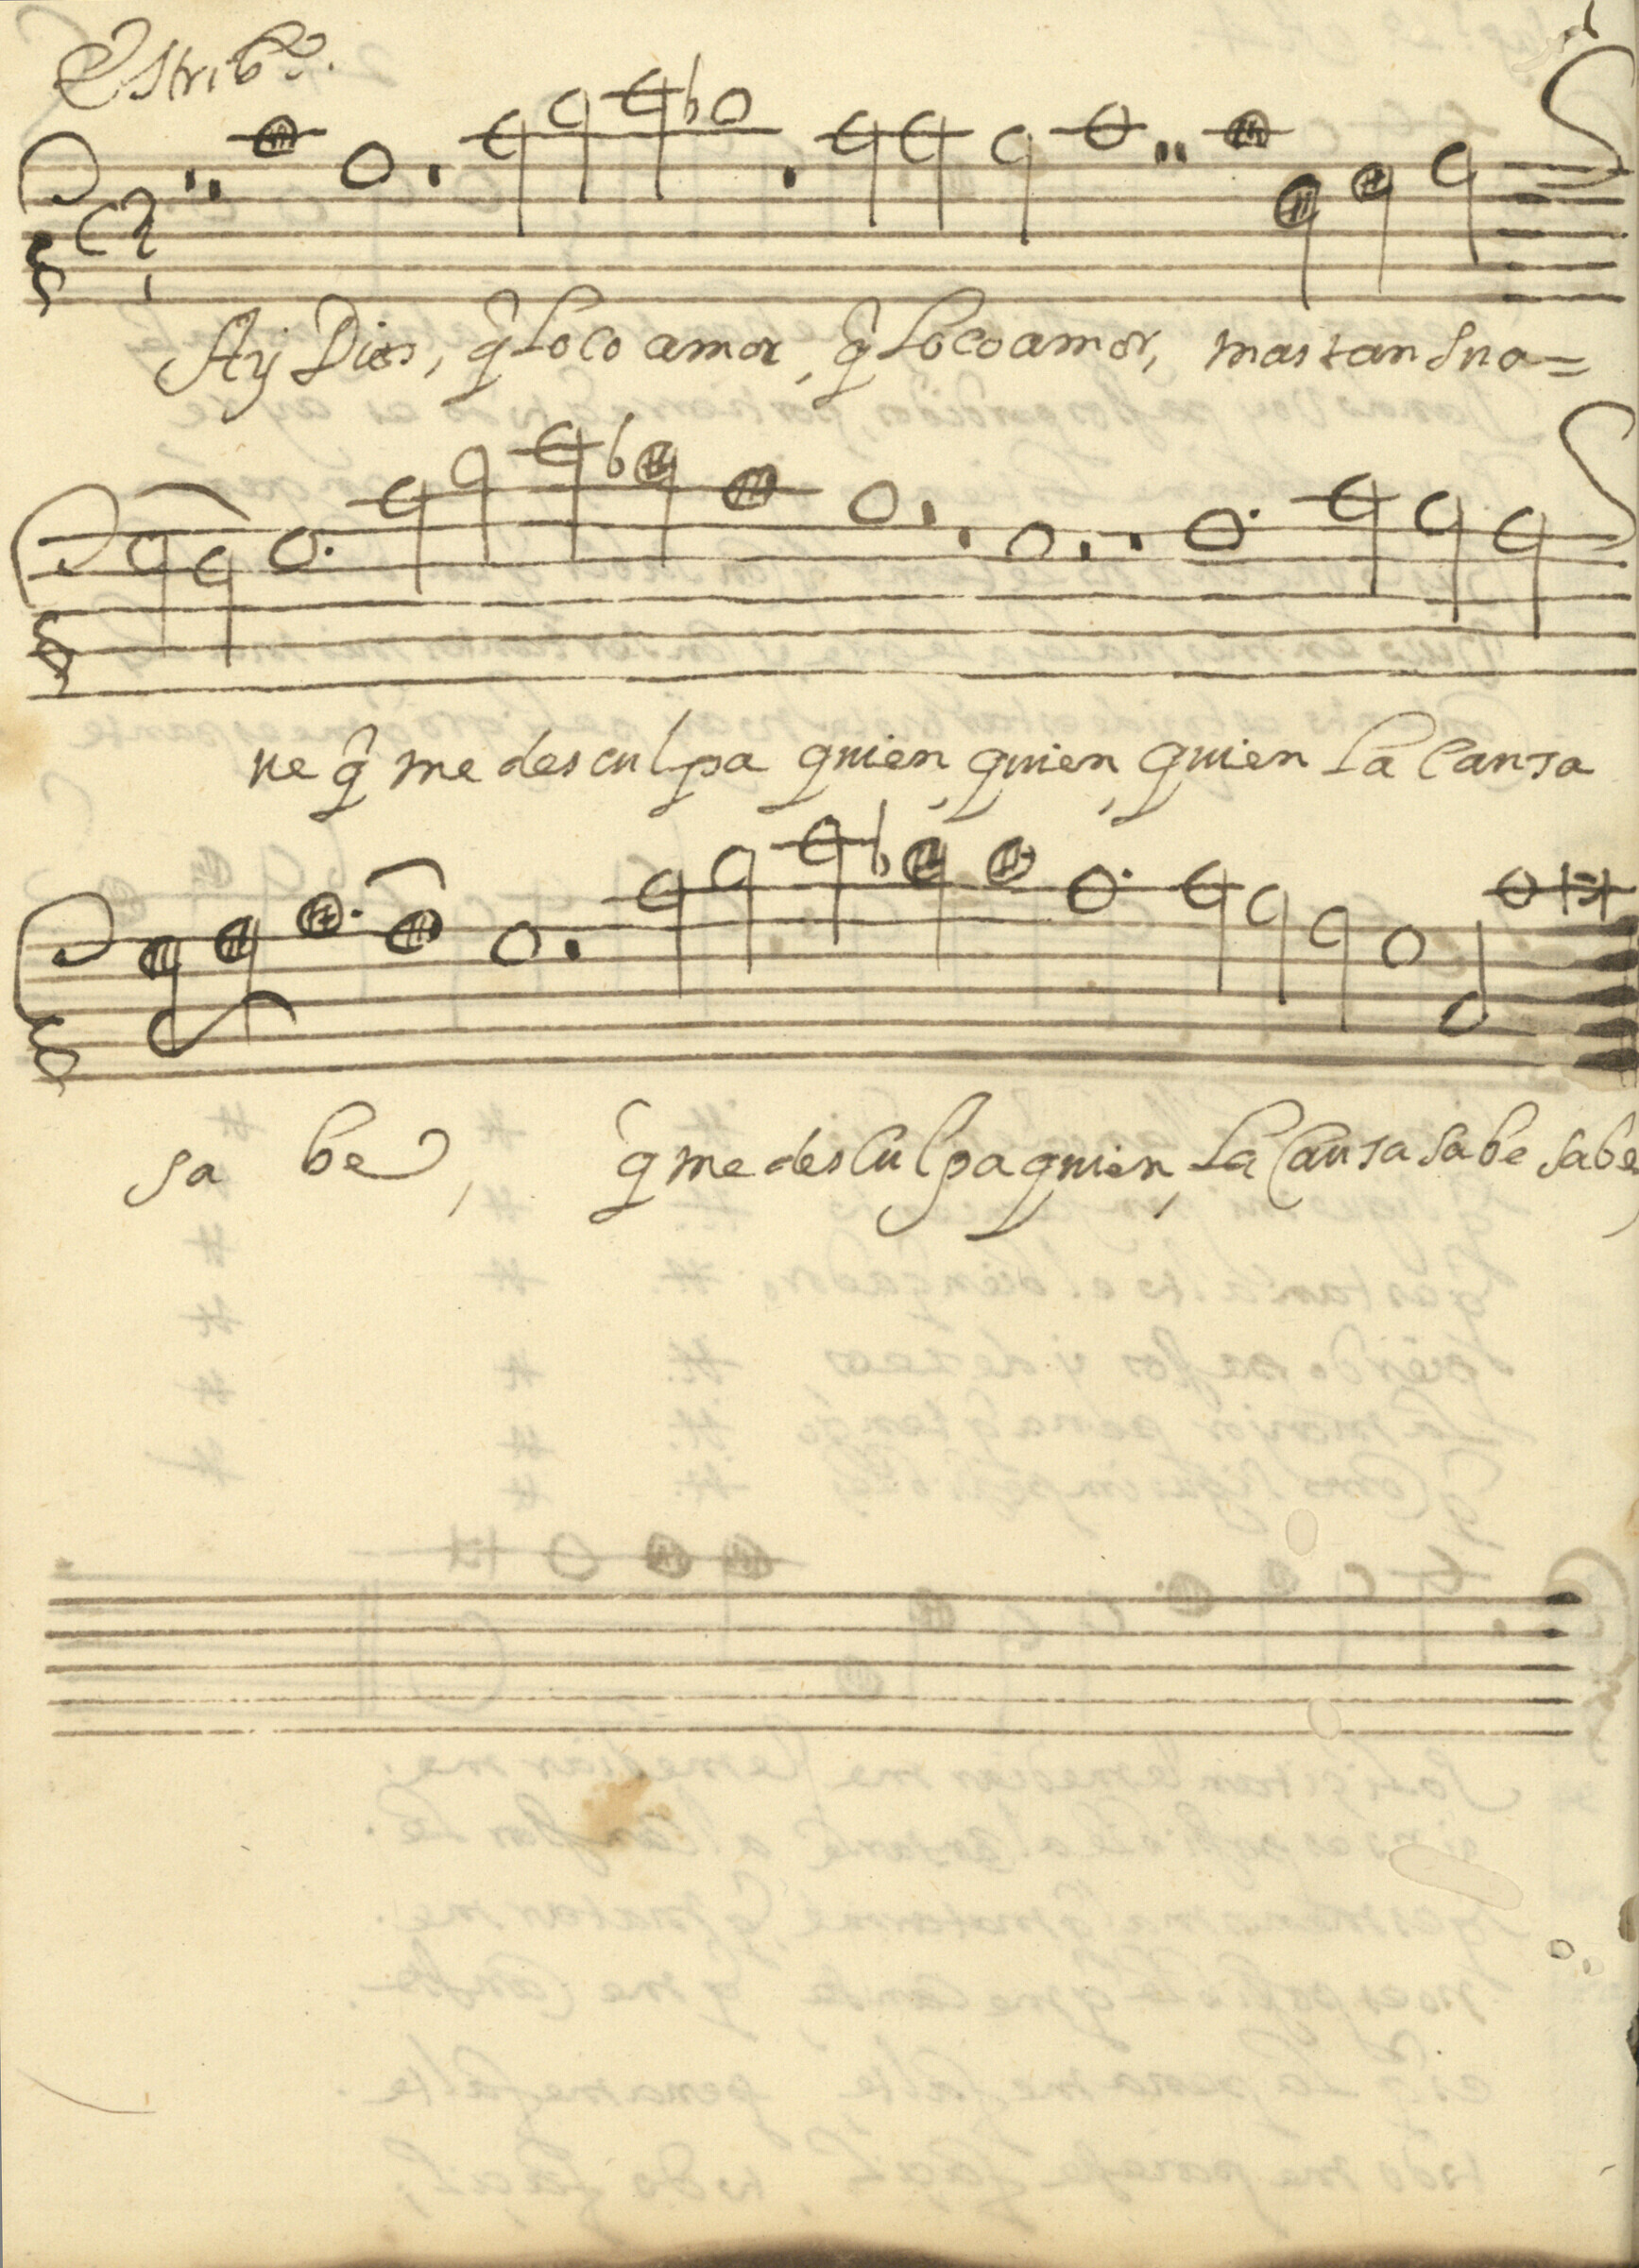 Estribo.
Ay Dios, q̃ loco amor, q̃ loco amor, mas tan sua=
ve q̃ me desculpa quien, quien, quien la causa
sa be, q̃ me desculpa quien, la causa sabe sabe,